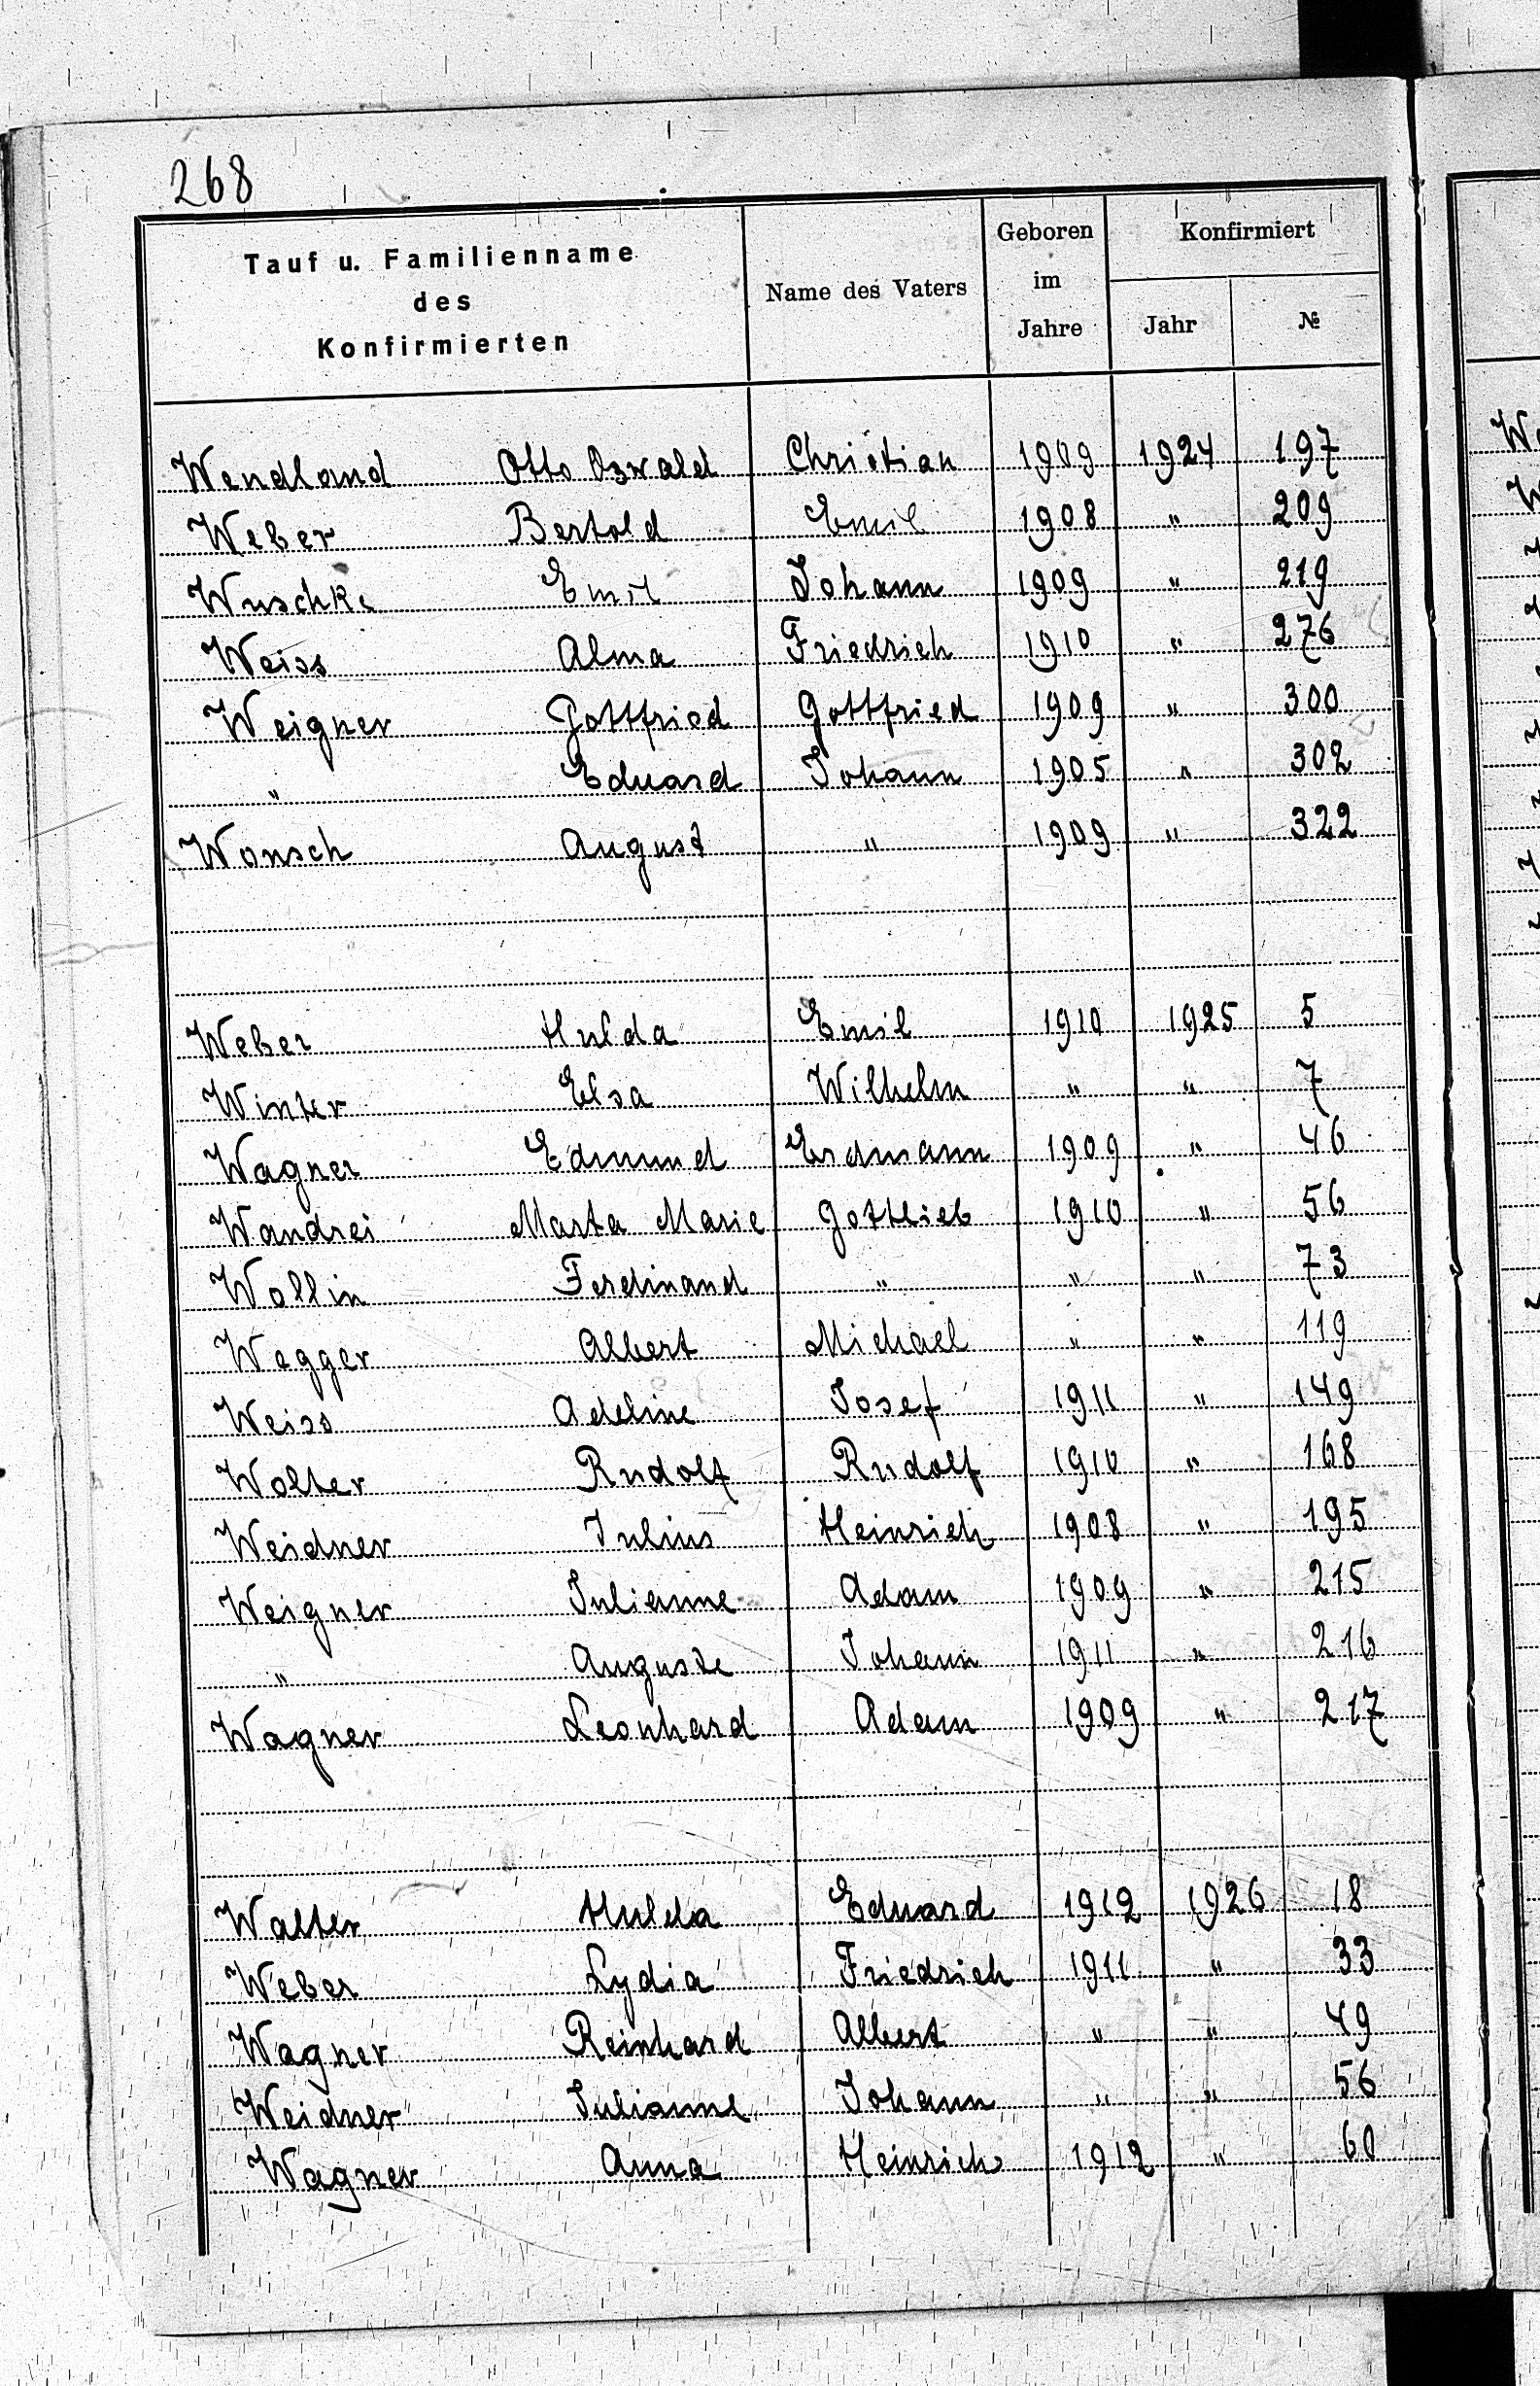 268
Tauf u. Familienname des Konfirmierten Name des Vaters Geboren im Jahre Konfirmiert Jahr №
Wendland Otto Oswald Christian 1909 1924 197
Weber Bertold Emil 1908 " 209
Wuschke Emil Johann 1909 " 219
Weiss Alma Friedrich 1910 " 276
Weigner Gottfried Gottfried 1909 " 300
" Eduard Johann 1905 " 302
Wonsch August " 1909 " 322
Weber Hulda Emil 1910 1925 5
Winter Elsa Wilhelm " " 7
Wagner Edmund Erdmann 1909 " 46
Wandrei Marta Marie Gottlieb 1910 " 56
Wollin Ferdinand " " " 73
Wegger Albert Michael " " 119
Weiss Adeline Josef 1911 " 149
Wolter Rudolf Rudolf 1910 " 168
Weidner Julius Heinrich 1908 " 195
Weigner Julianne Adam 1909 " 215
" Auguste Johann 1911 " 216
Wagner Leonhard Adam 1909 " 217
Walter Hulda Eduard 1912 1926 18
Weber Lydia Friedrich 1911 " 33
Wagner Reinhard Albert " " 49
Weidner Julianne Johann " " 56
Wagner Anna Heinrich 1912 " 60